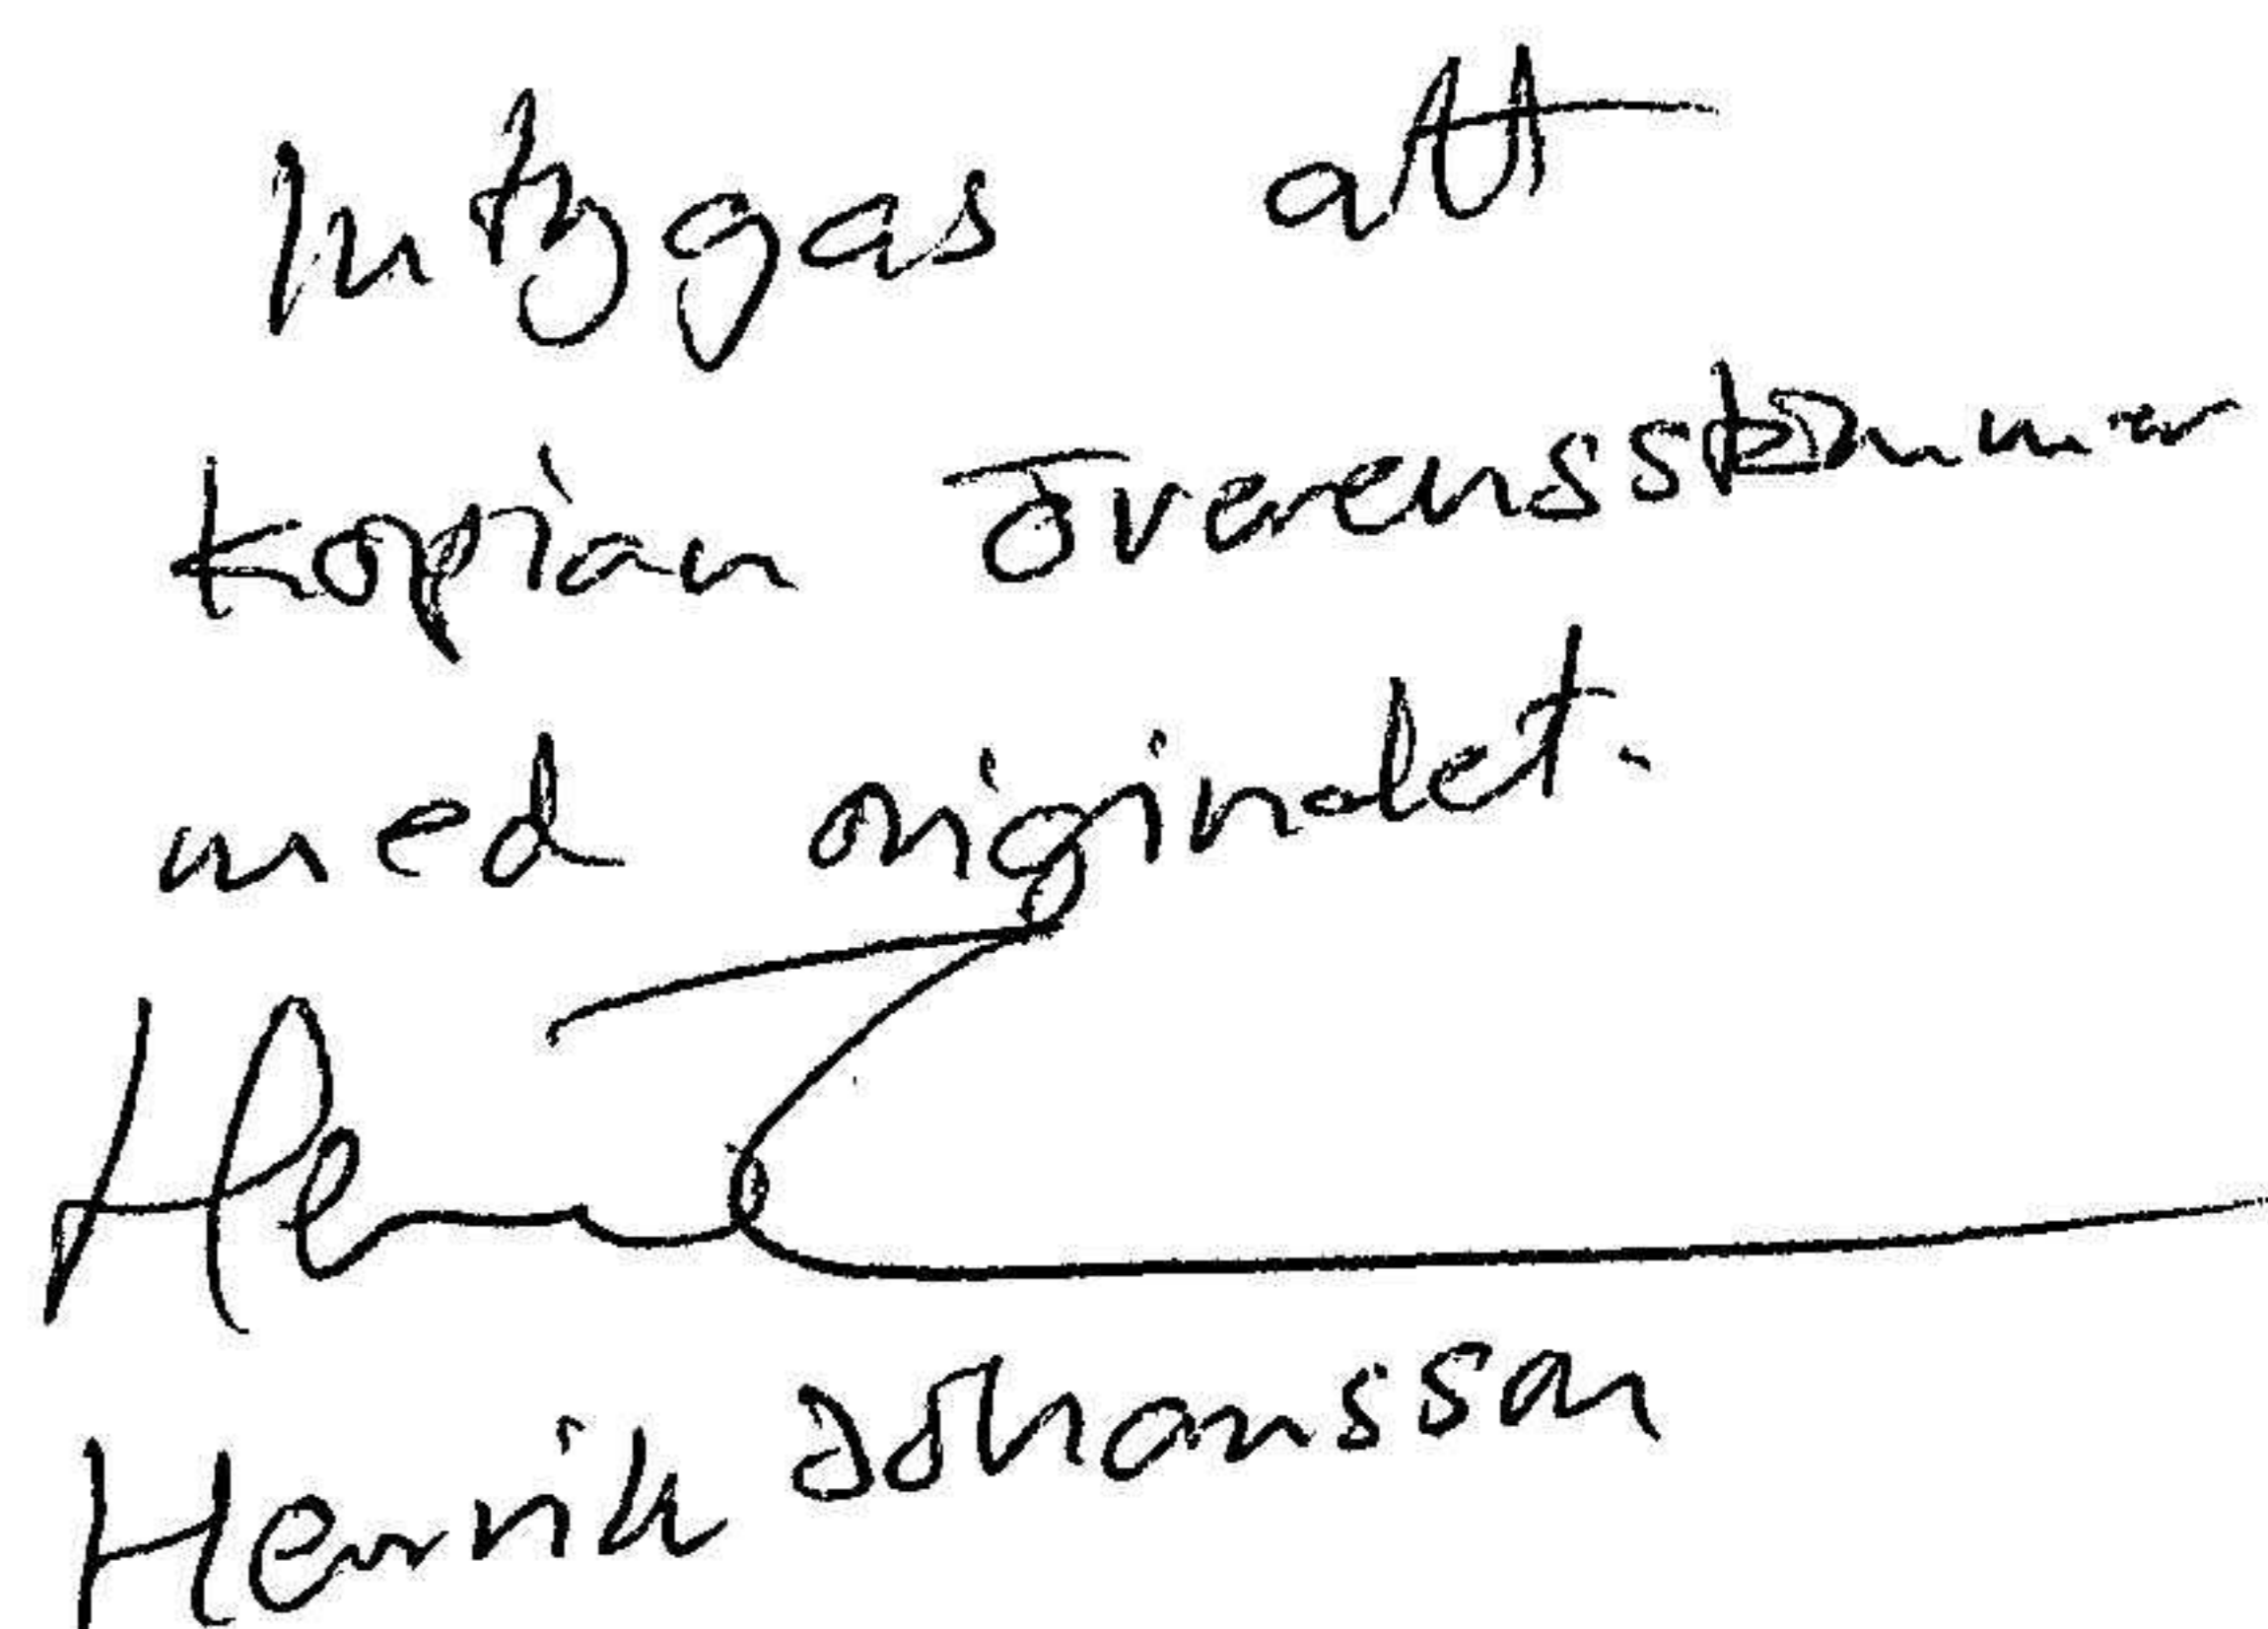 Intygas att
kopian överensstämmer
med originalet.
Henrik Johansson